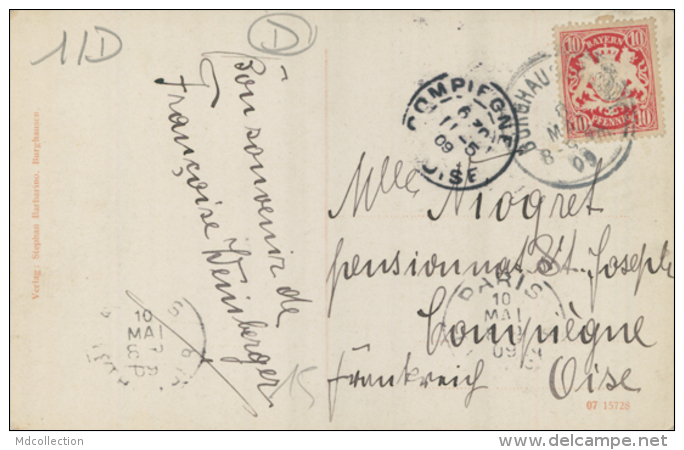 11D
D
Bon souvenir de
Françoise Weinberger
Verlag: Stephan Barbarino, Burghausen.
BAYERN
10 10
10 10
PFENNIG
COMPIEGNE
OISE
BURGHAU
09
Mlle Niogret
pensionnat St. Joseph
Compiègne
Frankreich Oise
PARIS
10
MAI
09
10
MAI
15
07 15728
Mdcollection
www.delcampe.net